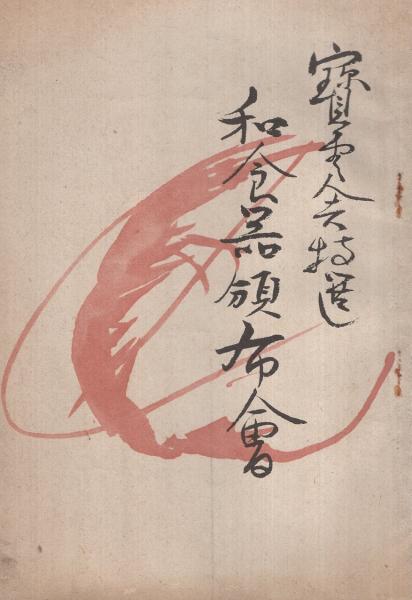 寶雲舎特選
和食器頒布會